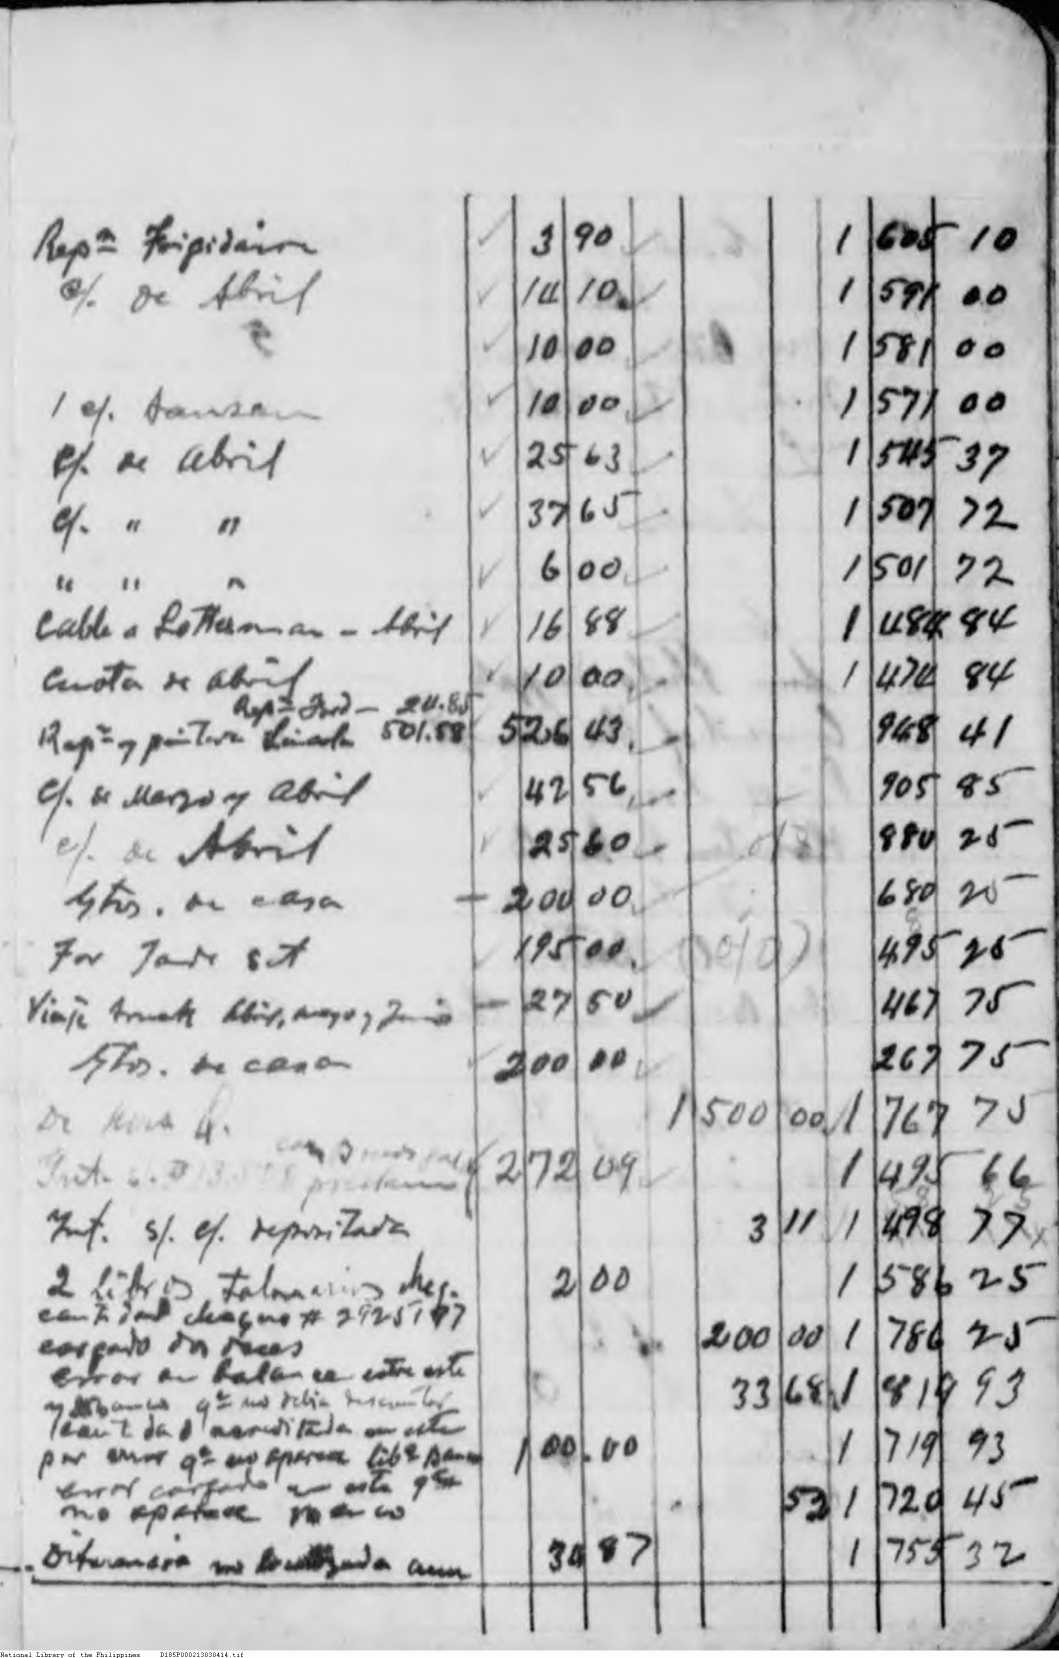 Repn Frigidaire 3 90 1 605 10
c/. de Abril 14 10 1 591 00
10 00 1 581 00
1 c/. 10 00 1 571 00
c/. de Abril 25 63 1 545 37
c/. " " 37 65 1 507 72
" " " 6 00 1 501 72
Cable a Lotterman - Abril 16 88 1 484 84
Cuota de Abril 10 00 1 474 84
Repn Ford - 24.85
Repn y pintura Lincoln 501.58 526 43 948 41
c/. de Marzo y Abril 42 56 905 85
c/. de Abril 25 60 880 25
Gtos. de casa 200 00 680 25
For set 195 00 495 25
Viaje truck Abril, mayo y Junio 27 50 467 75
Gtos. de casa 200 00 267 75
De 1 500 00 1 767 75
272 09 1 495 66
Int. s/. c/. depositada 3 11 1 498 77
2 Libros Talonarios cheq. 2 00 1 586 25
cantidad cheque # 2925197
cargado dos veces 200 00 1 786 25
error en balance entre este
y banco qe no debia descontar 33 68 1 819 93
cantidad acreditada en este
por error qe no aparece libn Banco 100.00 1 719 93
error cargado en este qe
no aparece 52 1 720 45
Diferencia no localizada aun 34 87 1 755 32
National Library of the Philippines D185P000213030414.tif